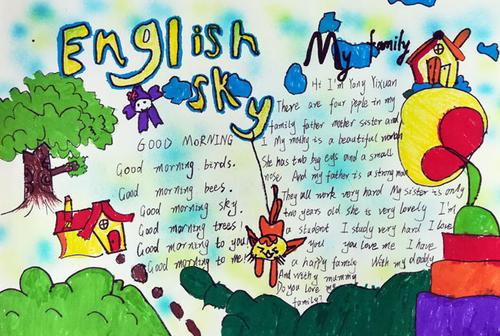 English
sky
GOOD MORNING
Good morning birds.
Good morning bees.
Good morning sky.
Good morning trees!
Good morning to you!
Good morning to me!
My family
Hi I'm Yang Yixuan
There are four peple in my
family father mother sister and
I My mothy is a beautiful woman
She has two big eys and a small
nose And my father is a strong man
They all work very hard My sister is only
two years old she is very lovely I'm
a student I study very hard I love
you you love me I have
a happy family With my daddy
And with my mummy
Do you love my
family?